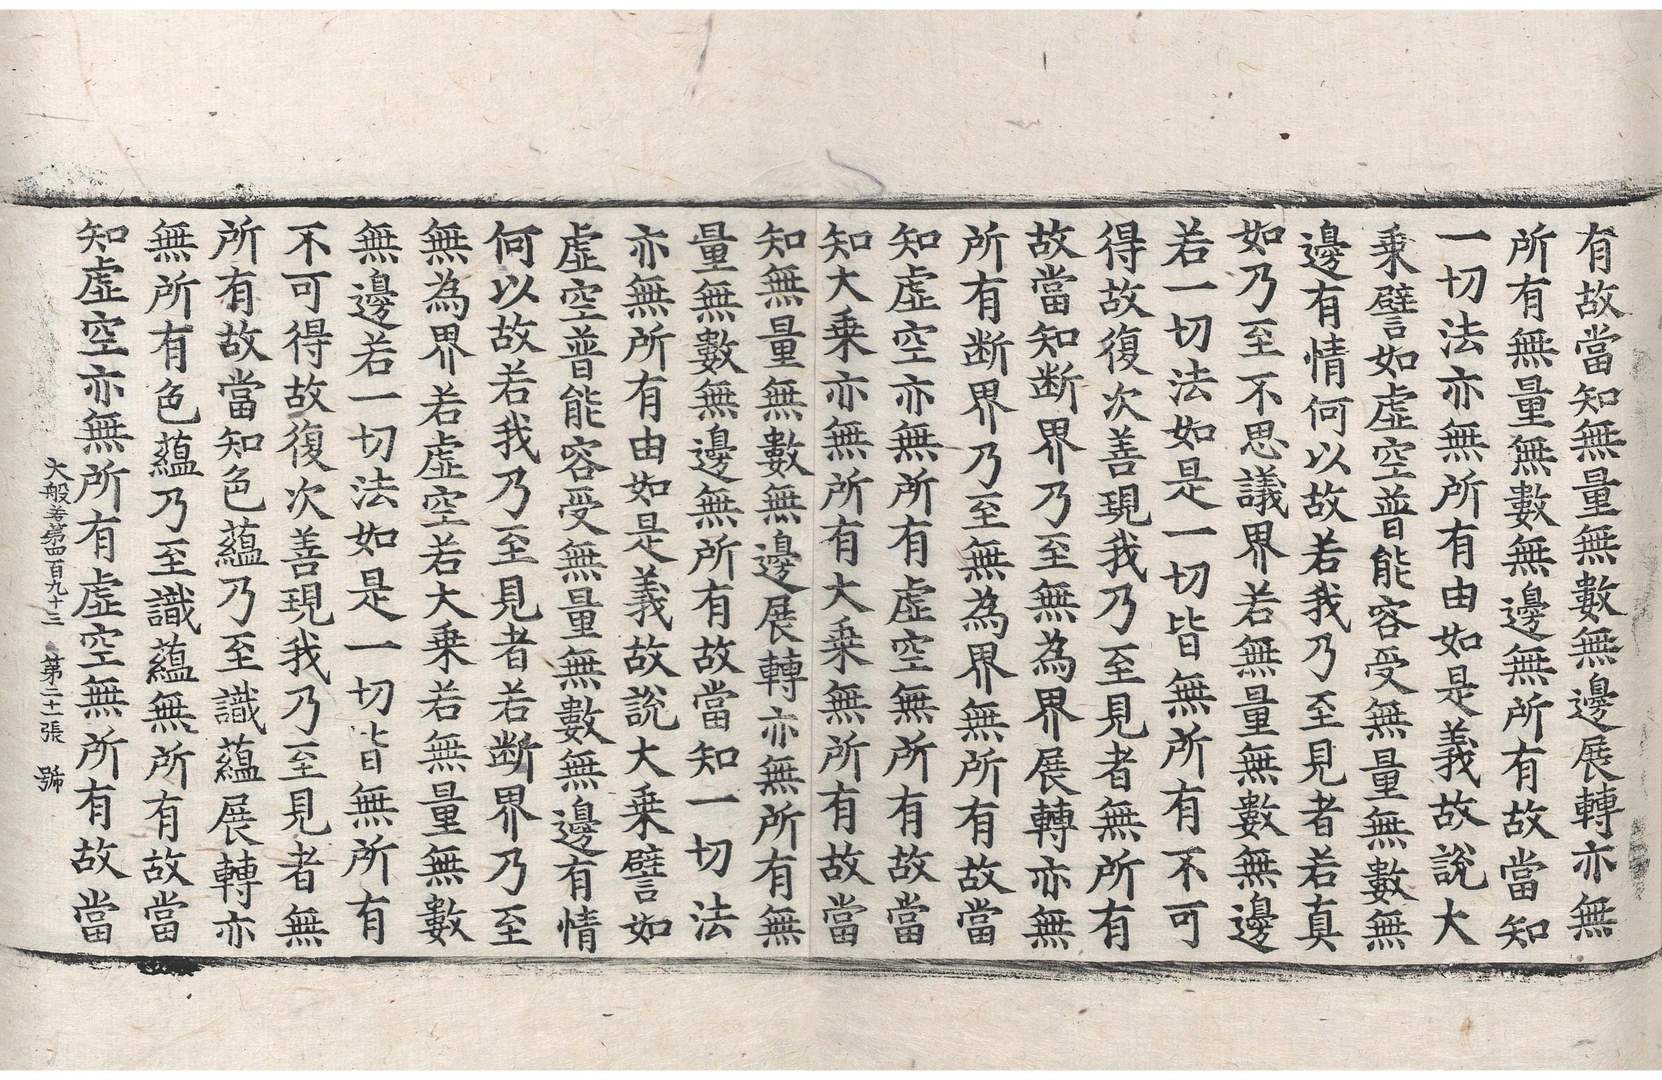 有故當知無量無數無邊展轉亦無
所有無量無數無邊無所有故當知
一切法亦無所有由如是義故說大
乗譬如虛空普能容受無量無數無
邊有情何以故若我乃至見者若真
如乃至不思議界若無量無數無邊
若一切法如是一切皆無所有不可
得故復次善現我乃至見者無所有
故當知断界乃至無為界展轉亦無
所有断界乃至無為界無所有故當
知虛空亦無所有虛空無所有故當
知大乗亦無所有大乗無所有故當
知無量無數無邊展轉亦無所有無
量無數無邊無所有故當知一切法
亦無所有由如是義故說大乗譬如
虛空普能容受無量無數無邊有情
何以故若我乃至見者若断界乃至
無為界若虛空若大乗若無量無數
無邊若一切法如是一切皆無所有
不可得故復次善現我乃至見者無
所有故當知色蘊乃至識蘊展轉亦
無所有色蘊乃至識蘊無所有故當
知虛空亦無所有虛空無所有故當
大般若第四百九十三 第二十張 號